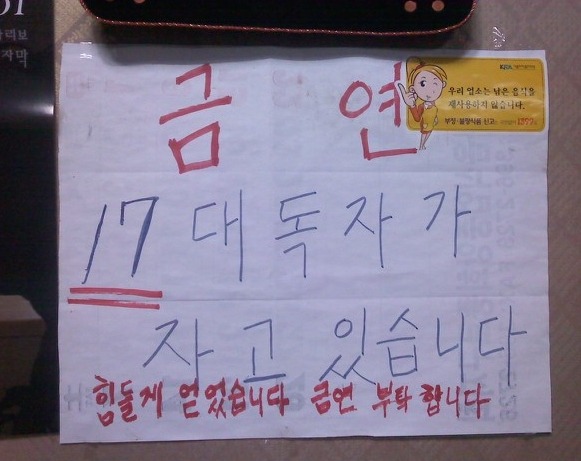 금 연
우리 업소는 남은 음식을
재사용하지 않습니다.
부정·불량식품 신고는 1399
17 대 독자가
자고 있습니다
힘들게 얻었습니다 금연 부탁 합니다